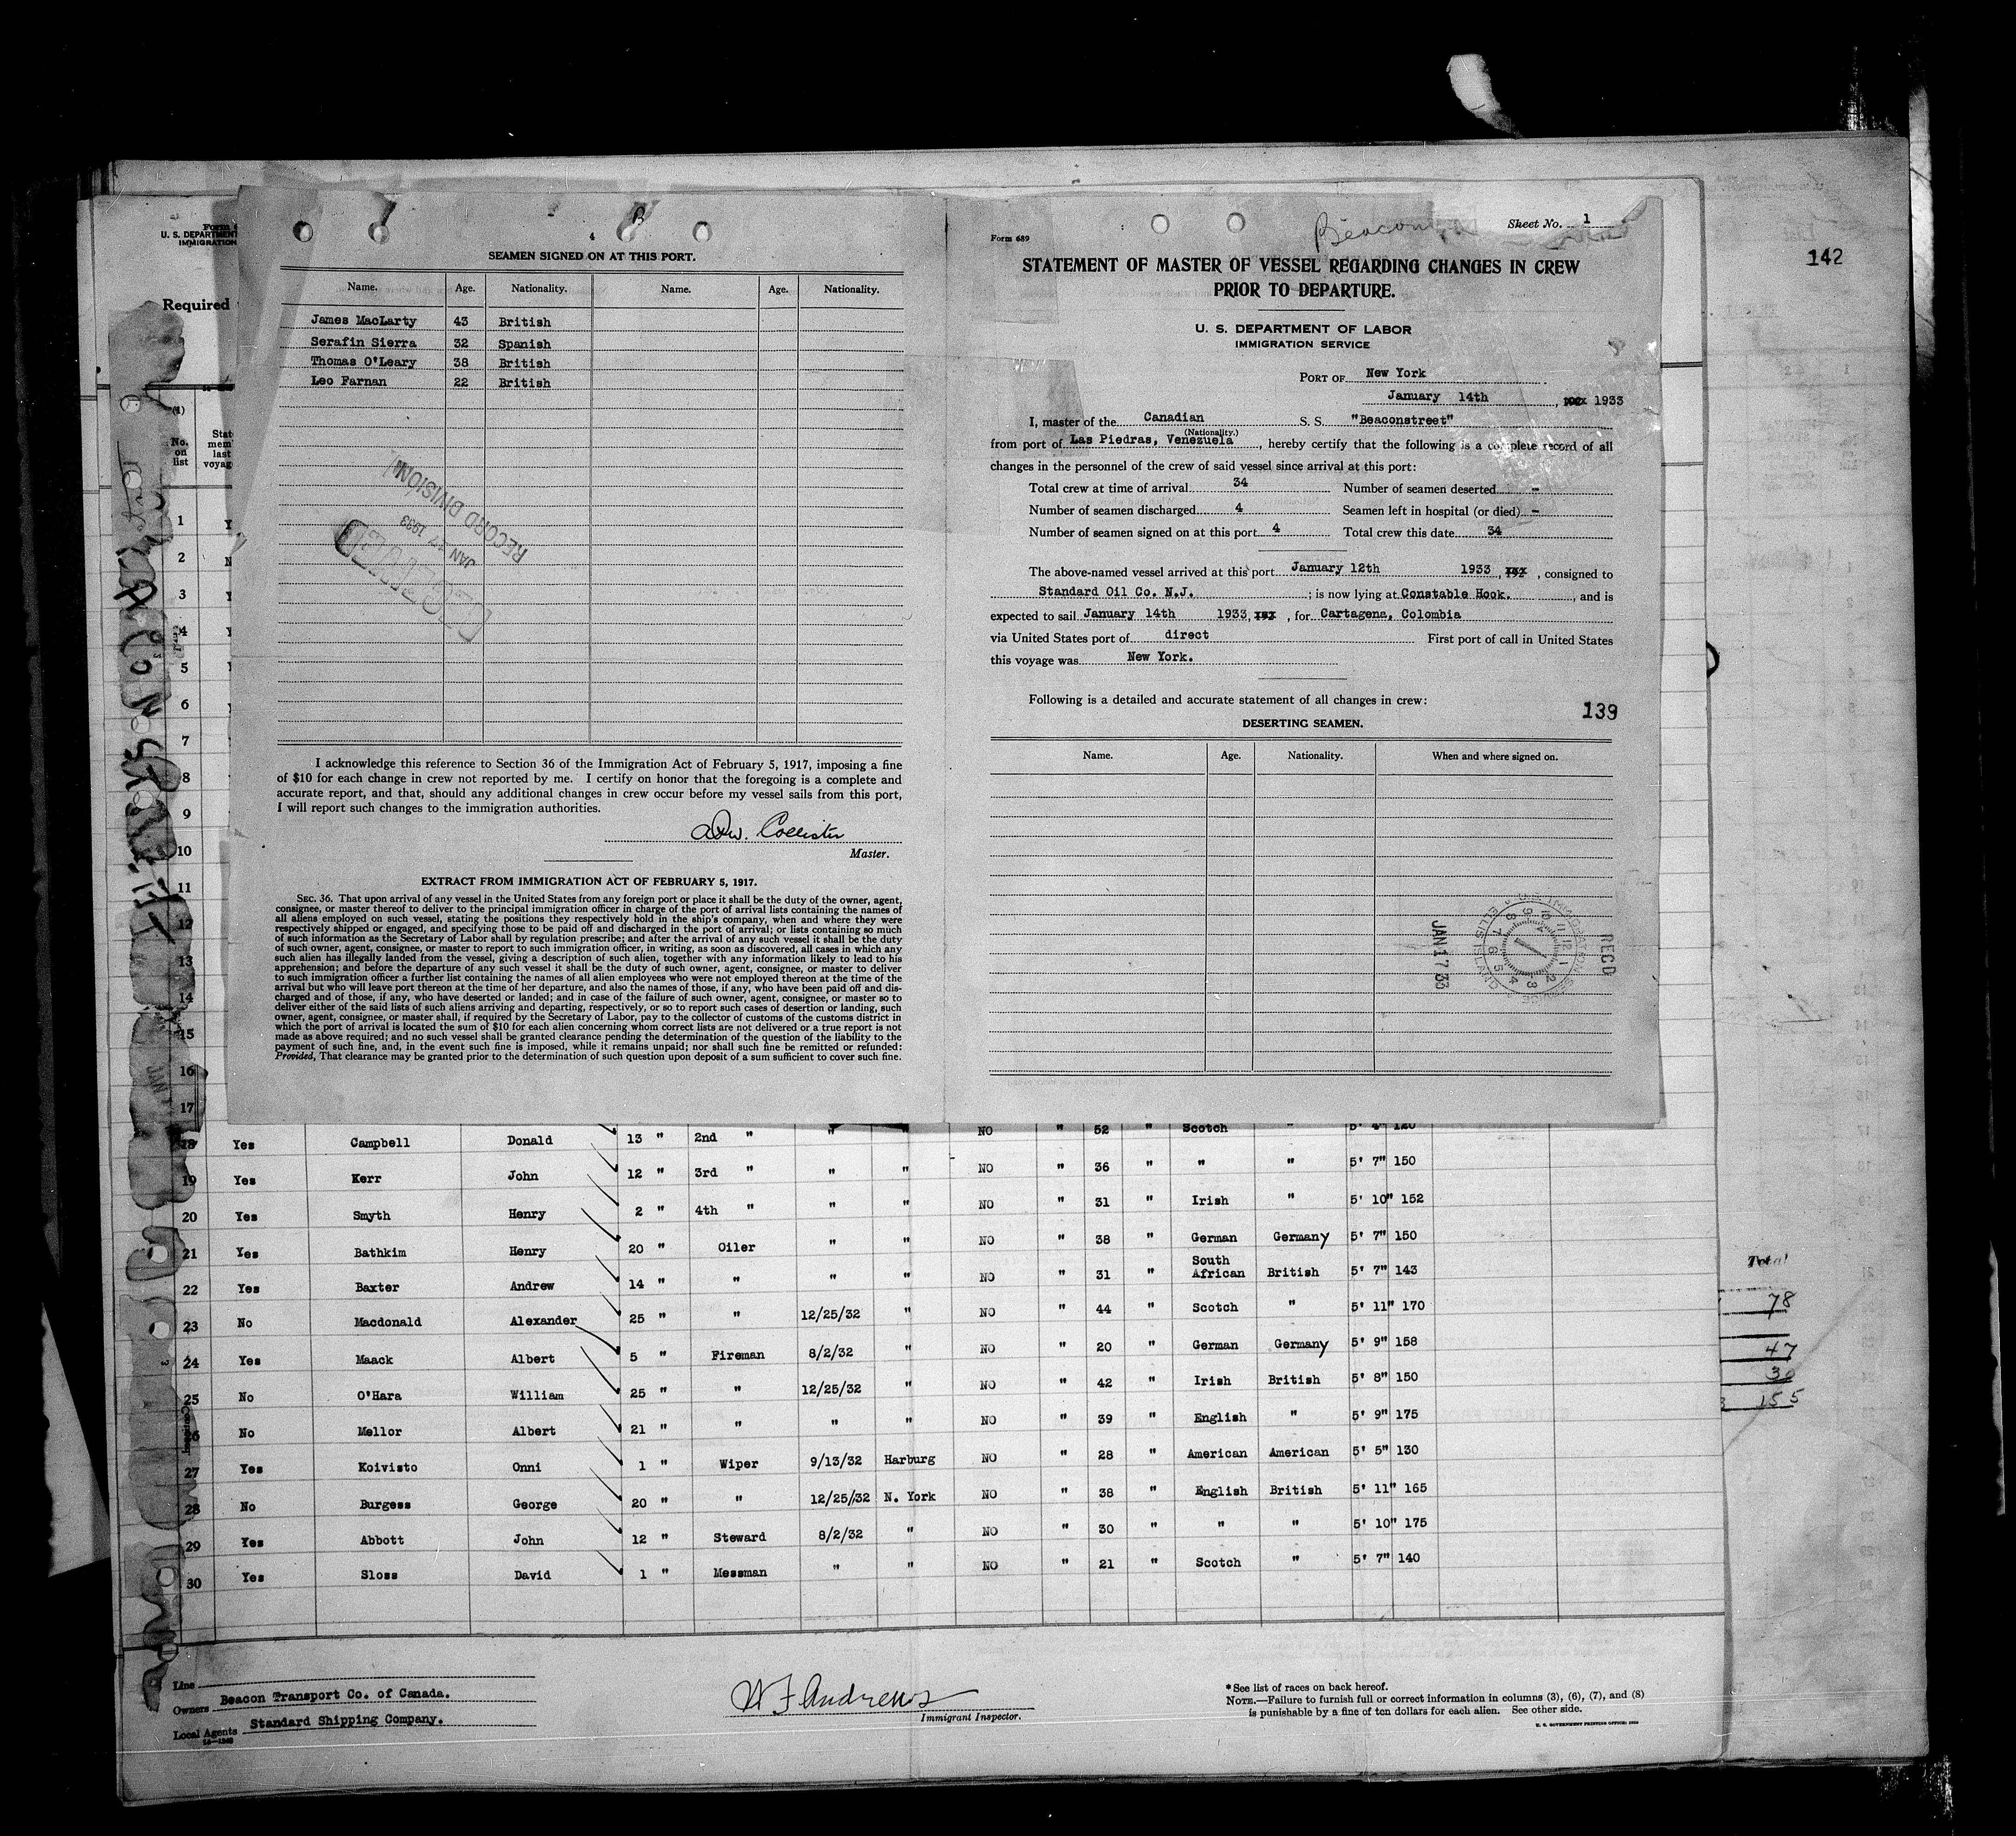 4
SEAMEN SIGNED ON AT THIS PORT.
Name. Age. Nationality. Name. Age. Nationality.
James MacLarty 43 British
Serafin Sierra 32 Spanish
Thomas O'Leary 38 British
Leo Farnan 22 British
RECORD DIVISION
JAN 17 1933
I acknowledge this reference to Section 36 of the Immigration Act of February 5, 1917, imposing a fine
of $10 for each change in crew not reported by me. I certify on honor that the foregoing is a complete and
accurate report, and that, should any additional changes in crew occur before my vessel sails from this port,
I will report such changes to the immigration authorities.
Collister
Master.
EXTRACT FROM IMMIGRATION ACT OF FEBRUARY 5, 1917.
SEC. 36. That upon arrival of any vessel in the United States from any foreign port or place it shall be the duty of the owner, agent,
consignee, or master thereof to deliver to the principal immigration officer in charge of the port of arrival lists containing the names of
all aliens employed on such vessel, stating the positions they respectively hold in the ship's company, when and where they were
respectively shipped or engaged, and specifying those to be paid off and discharged in the port of arrival; or lists containing so much
of such information as the Secretary of Labor shall by regulation prescribe; and after the arrival of any such vessel it shall be the duty
of such owner, agent, consignee, or master to report to such immigration officer, in writing, as soon as discovered, all cases in which any
such alien has illegally landed from the vessel, giving a description of such alien, together with any information likely to lead to his
apprehension; and before the departure of any such vessel it shall be the duty of such owner, agent, consignee, or master to deliver
to such immigration officer a further list containing the names of all alien employees who were not employed thereon at the time of the
arrival but who will leave port thereon at the time of her departure, and also the names of those, if any, who have been paid off and dis-
charged and of those, if any, who have deserted or landed; and in case of the failure of such owner, agent, consignee, or master so to
deliver either of the said lists of such aliens arriving and departing, respectively, or so to report such cases of desertion or landing, such
owner, agent, consignee, or master shall, if required by the Secretary of Labor, pay to the collector of customs of the customs district in
which the port of arrival is located the sum of $10 for each alien concerning whom correct lists are not delivered or a true report is not
made as above required; and no such vessel shall be granted clearance pending the determination of the question of the liability to the
payment of such fine, and, in the event such fine is imposed, while it remains unpaid; nor shall such fine be remitted or refunded:
Provided, That clearance may be granted prior to the determination of such question upon deposit of a sum sufficient to cover such fine.
Beacon
Sheet No. 1
Form 689
STATEMENT OF MASTER OF VESSEL REGARDING CHANGES IN CREW
PRIOR TO DEPARTURE.
U. S. DEPARTMENT OF LABOR
IMMIGRATION SERVICE
PORT OF New York
January 14th, 1933
I, master of the Canadian S. S. "Beaconstreet"
(Nationality.)
from port of Las Piedras, Venezuela, hereby certify that the following is a complete record of all
changes in the personnel of the crew of said vessel since arrival at this port:
Total crew at time of arrival 34 Number of seamen deserted -
Number of seamen discharged 4 Seamen left in hospital (or died) -
Number of seamen signed on at this port 4 Total crew this date 34
The above-named vessel arrived at this port January 12th 1933, consigned to
Standard Oil Co. N.J. ; is now lying at Constable Hook. , and is
expected to sail January 14th 1933, for Cartagena, Colombia
via United States port of direct First port of call in United States
this voyage was New York.
Following is a detailed and accurate statement of all changes in crew:
139
DESERTING SEAMEN.
Name. Age. Nationality. When and where signed on.
REC'D
IMMIGRATION SERVICE
ELLIS ISLAND
JAN 17 33
142
U. S. DEPARTMENT
IMMIGRATION
Required
(1)
No. on list
1
2
3
4
5
6
7
8
9
10
11
12
13
14
15
16
17
NO " 52 " Scotch " 5' 4" 120
18 Yes Campbell Donald 13 " 2nd " " "
19 Yes Kerr John 12 " 3rd " " " NO " 36 " " " 5' 7" 150
20 Yes Smyth Henry 2 " 4th " " " NO " 31 " Irish " 5' 10" 152
21 Yes Bathkim Henry 20 " Oiler " " NO " 38 " German Germany 5' 7" 150
22 Yes Baxter Andrew 14 " " " " NO " 31 " South African British 5' 7" 143
23 No Macdonald Alexander 25 " " 12/25/32 " NO " 44 " Scotch " 5' 11" 170
24 Yes Maack Albert 5 " Fireman 8/2/32 " NO " 20 " German Germany 5' 9" 158
25 No O'Hara William 25 " " 12/25/32 " NO " 42 " Irish British 5' 8" 150
26 No Mellor Albert 21 " " " " NO " 39 " English " 5' 9" 175
27 Yes Koivisto Onni 1 " Wiper 9/13/32 Harburg NO " 28 " American American 5' 5" 130
28 No Burgess George 20 " " 12/25/32 N. York NO " 38 " English British 5' 11" 165
29 Yes Abbott John 12 " Steward 8/2/32 " NO " 30 " " " 5' 10" 175
30 Yes Sloss David 1 " Messman " " NO " 21 " Scotch " 5' 7" 140
Total
78
47
30
155
Line
Owners Beacon Transport Co. of Canada.
Local Agents Standard Shipping Company.
W F Andrews
Immigrant Inspector.
*See list of races on back hereof.
NOTE.—Failure to furnish full or correct information in columns (3), (6), (7), and (8)
is punishable by a fine of ten dollars for each alien. See other side.
U. S. GOVERNMENT PRINTING OFFICE